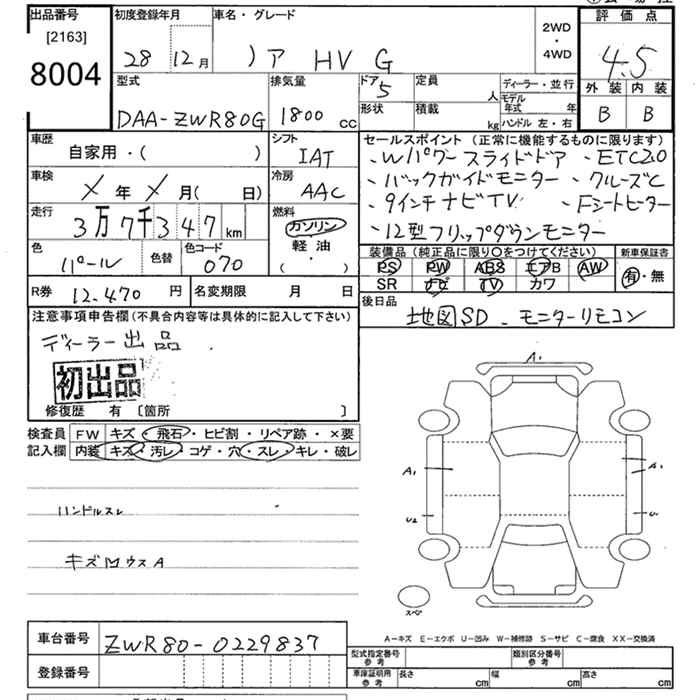 出品番号
[2163]
8004
初度登録年月
28 12月
車名・グレード
ノア HV G
2WD
・
4WD
評価点
4.5
外装 内装
B B
型式
DAA-ZWR80G
排気量
1800 cc
ドア
5
定員
人
形状
積載
kg
ディーラー・並行
モデル年式 年
ハンドル 左・右
車歴
自家用・( )
シフト
IAT
車検
X年X月( 日)
冷房
AAC
走行
3万7千347km
燃料
ガソリン
軽油
( )
色
パール
色替
色コード
070
R券 12.470円
名変期限 月 日
セールスポイント (正常に機能するものに限ります)
・Wパワースライドドア ・ETC2.0
・バックガイドモニター ・クルーズC
・9インチナビTV ・Fシートヒーター
・12型フリップダウンモニター
装備品 (純正品に限り○をつけてください)
PS PW ABS エアB AW
SR ナビ TV カワ
新車保証書
有・無
後日品
地図SD . モニターリモコン
注意事項申告欄(不具合内容等は具体的に記入して下さい)
ディーラー出品.
初出品
修復歴 有 [箇所 ]
検査員記入欄
FW キズ・飛石・ヒビ割・リペア跡・×要
内装 キズ・汚レ・コゲ・穴・スレ・キレ・破レ
ハンドルスレ
キズMウスA
A1
A1 A1
U2 U1
スペア
A-キズ E-エクボ U-凹み W-補修跡 S-サビ C-腐食 XX-交換済
車台番号 ZWR80-0229837
登録番号
型式指定番号 参考
類別区分番号 参考
車庫証明用 参考
長さ cm 幅 cm 高さ cm